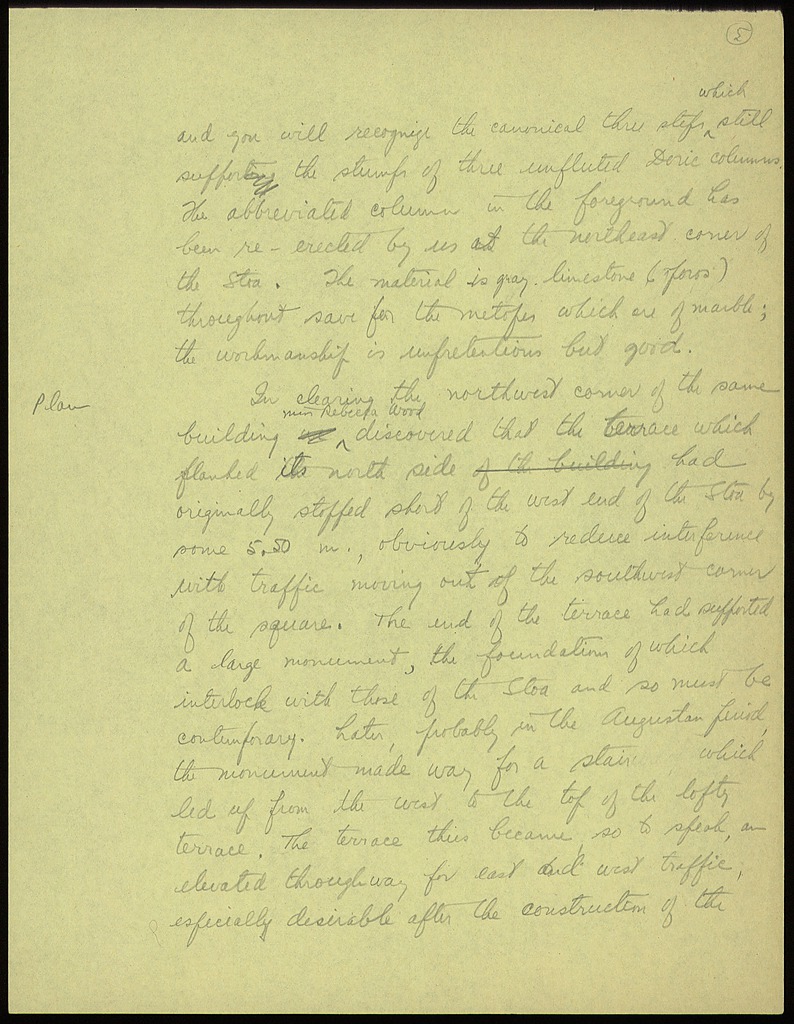 5
which
and you will recognize the canonical three steps ‸ still
supporting the stumps of three unfluted Doric columns.
The abbreviated column in the foreground has
been re-erected by us at the northeast corner of
the Stoa. The material is gray limestone ("poros")
throughout save for the metopes which are of marble;
the workmanship is unpretentious but good.
Plan
In clearing the northwest corner of the same
Miss Rebecca Wood
building ‸ discovered that the terrace which
flanked its north side of the building had
originally stopped short of the west end of the Stoa by
some 5.50 m., obviously to reduce interference
with traffic moving out of the southwest corner
of the square. The end of the terrace had supported
a large monument, the foundations of which
interlock with those of the Stoa and so must be
contemporary. Later, probably in the Augustan period,
the monument made way for a stair which
led up from the west to the top of the lofty
terrace. The terrace thus became, so to speak, an
elevated throughway for east and west traffic,
especially desirable after the construction of the